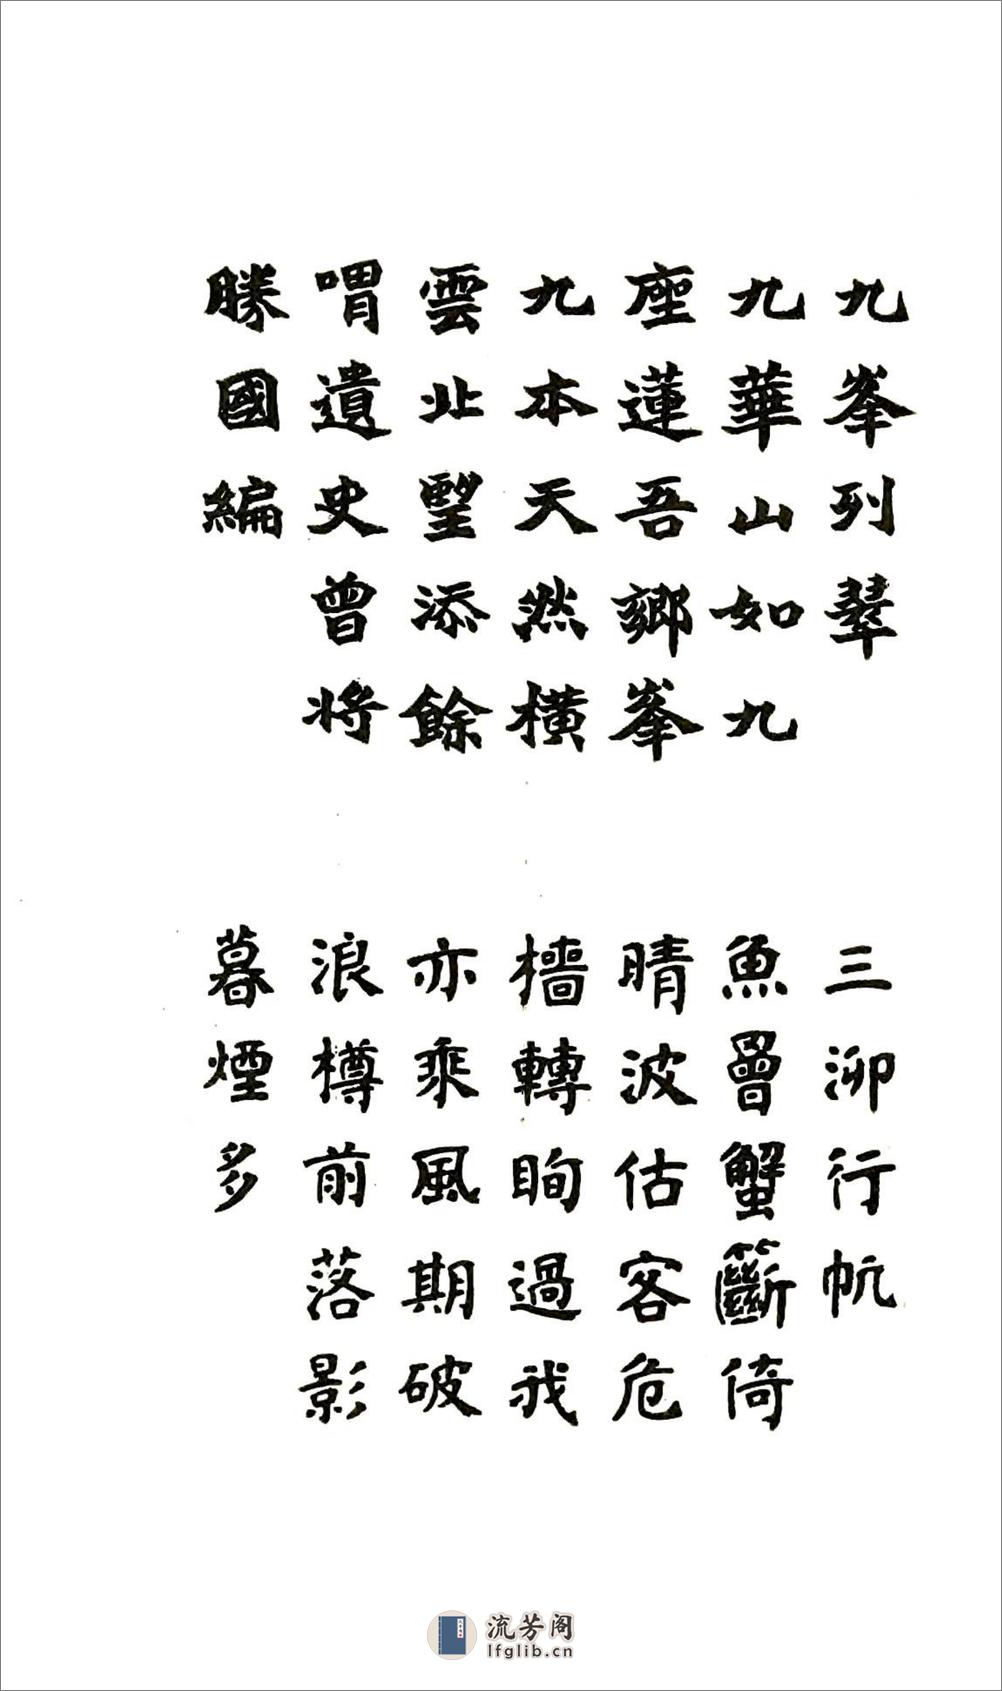 九峯列翠
九華山如九
座蓮吾鄉峯
九本天然橫
雲北望添餘
喟遺史曾將
勝國編
三泖行帆
魚罾蟹籪倚
晴波估客危
檣轉眴過我
亦乘風期破
浪樽前落影
暮煙多
流芳阁
lfglib.cn